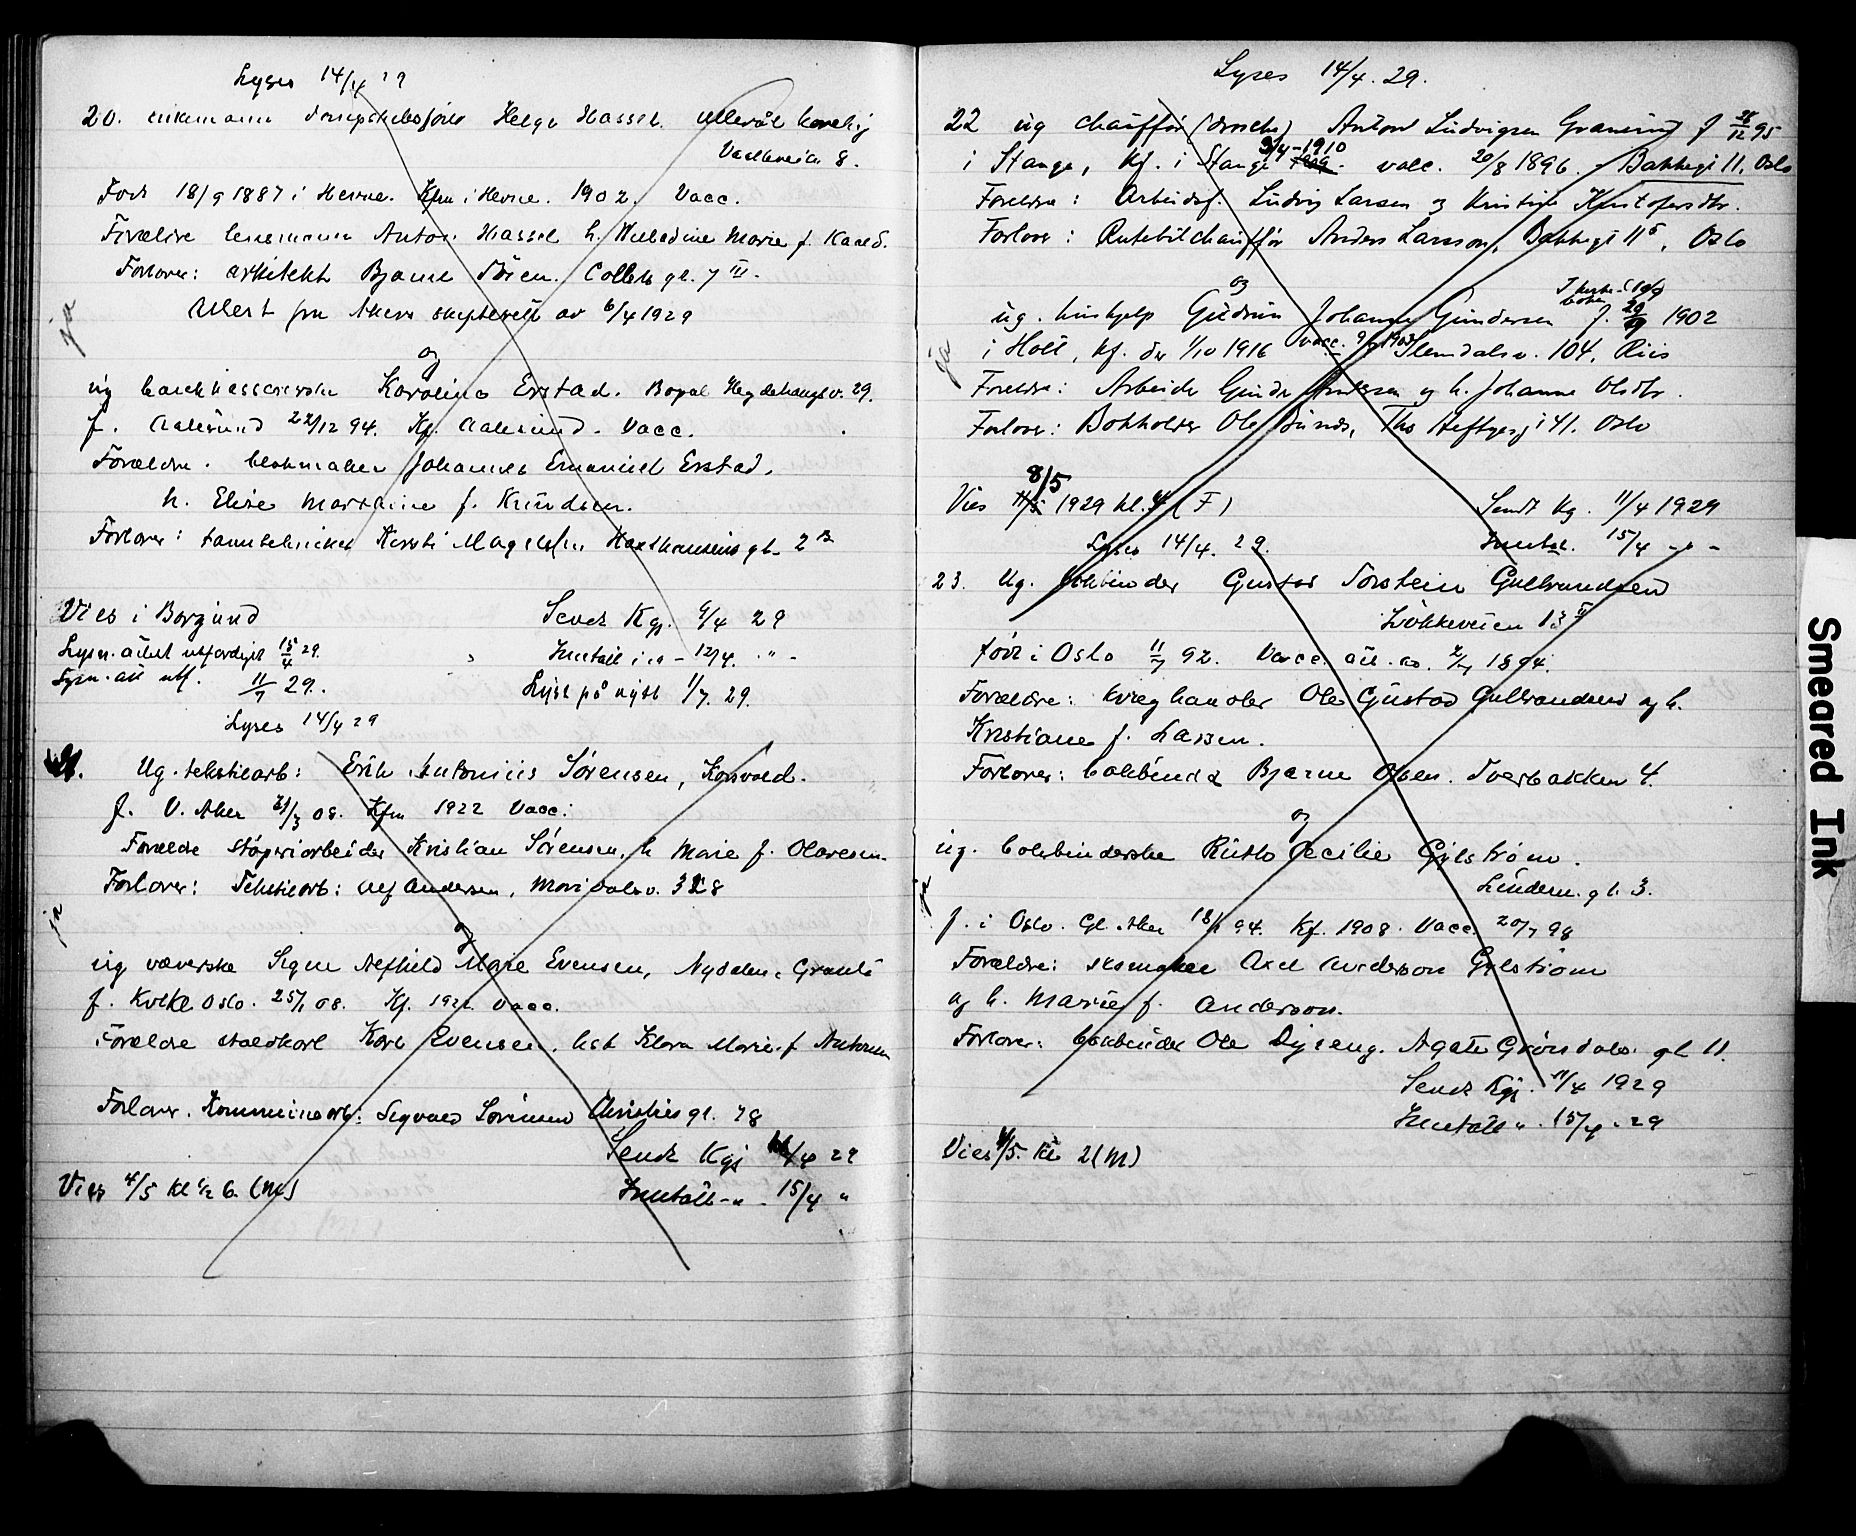 Lyses 14/4 29
20. enkemann Helge Hassel. Ullevål haveby
8.
Født 18/9 1887 i Hevne. Kfm i Hevne. 1902. Vacc.
Forældre lensmann Anton Hassel h. Marie f.
Forlover: arkitekt Bjarne Collets gt. 7 III.
Attest fra Akers skifterett av 6/4 1929
ja
og
ug Karoline Erstad. Bopæl Hegdehaugsv. 29.
f. Aalesund 22/12 94. Kf. Aalesund. Vacc.
Forældre. blokmaker Johannes Emanuel Erstad.
h. Elise f. Knudsen.
Forlover: tanntekniker Kirsti gt. 2 B
Vies i Borgund
Send Kgj. 9/4 29
Lysn. attest utferdiget 15/4 29.
Inntatt i " - 12/4. " -
Lysn. att utf. 11/7 29.
Lyst på nytt 1/7. 29.
Lyses 14/4 29
21. Ug. tekstilarb: Erik Antonius Sørensen, Konvald.
f. V. Aker 21/3 08. Kfm 1922 Vacc:
Forældre støperiarbeider Kristian Sørensen, h Marie f. Olavesen.
Forlover: Tekstilarb: Alf Andersen, Maridalsv. 328
ja
og
ug væverske Signe Marie Evensen, Nydalen,
f. Oslo. 25/1 08. Kf. 1922. Vacc.
Forældre staldkarl Karl Evensen, Klara Marie f
Forlover. Kommunearb: Sigvald Sørensen Christies gt. 28
Send Kgj 11/4 29
Vies 4/5 kl 1/2 6. (M)
Inntatt - " - 15/4 "
Lyses 14/4. 29.
22 ug chauffør (drosche) Anton Ludvigsen f 28/12 95
3/4-1910
i Stange, kf. i Stange vacc. 20/8 1896. Bakkegt 11, Oslo
Foreldre: Arbeidsf. Ludvig Larsen og Kristine Kristofersdtr.
Forlover: Rutebilchauffør Anders Larsson, Bakkegt 11 b, Oslo
og
ug. hushjelp Gudrun Johanne Gundersen f. 29/9 1902
i Holt, kf. der 1/10 1916 vacc. 1903 Slemdalsv. 104, Riis
ja
Foreldre: Arbeider Gunder Andersen og h. Johanne Olsdtr.
Forlover: Bokholder Ole Sunde, Ths Heftyesg 41. Oslo
8/5
Vies 11/5 1929 kl. 4 (F)
Sendt Kg. 11/4 1929
Lyses 14/4. 29.
Inntat. 15/4 - " -
23. Ug. bokbinder Gustav Torstein Gulbrandsen
Løkkeveien 13 II
født i Oslo 11/7 92. Vacc. att. av. 2/7 1894.
Forældre: kvæghandler Ole Gustav Gulbrandsen og h.
Kristiane f. Larsen.
Forlover: bokbinder Bjarne Olsen. Tverbakken 4.
og
ug. bokbinderske Ruth Cecilie Gylstrøm.
Lindern. gt. 3.
ja
f. i Oslo. Gl. Aker 94. Kf. 1908. Vacc. 20/7 98
Forældre: skomaker Axel Anderson Gylstrøm
og h. Marie f. Anderson.
Forlover: bokbinder Ole Dyreng. Agate Grøndals gt 11.
Send Kgj. 11/4 1929
Inntatt " . 15/4 . 29
Vies /5. Kl 2 (M)
Smeared Ink